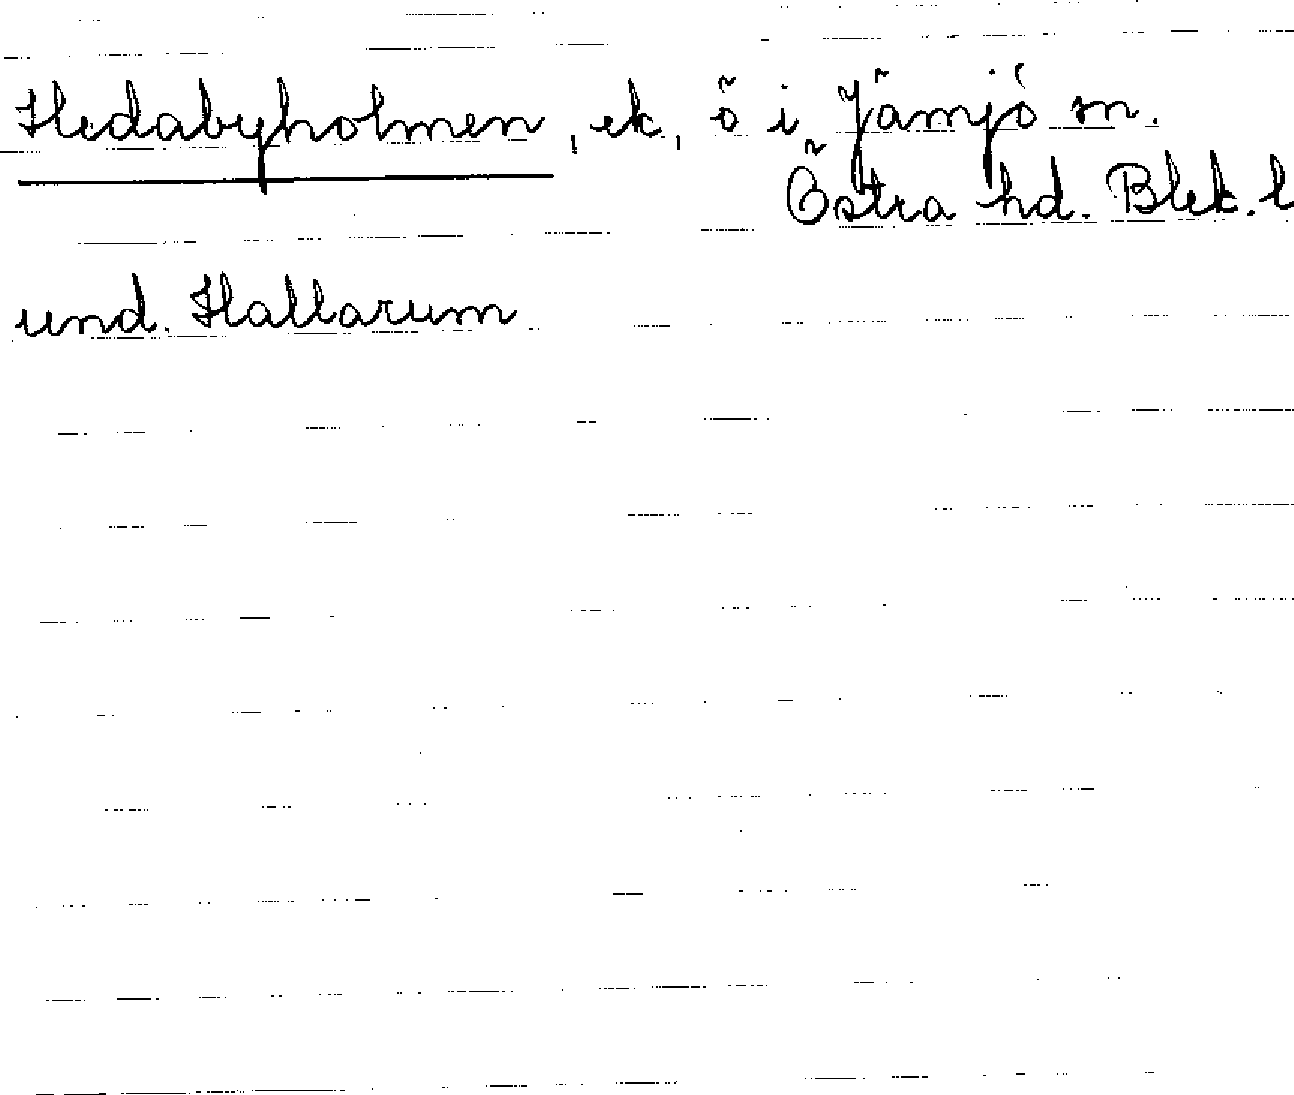 Hedabyholmen, ek, ö i Jämjö sn.
Östra hd. Blek. l
und. Hallarum